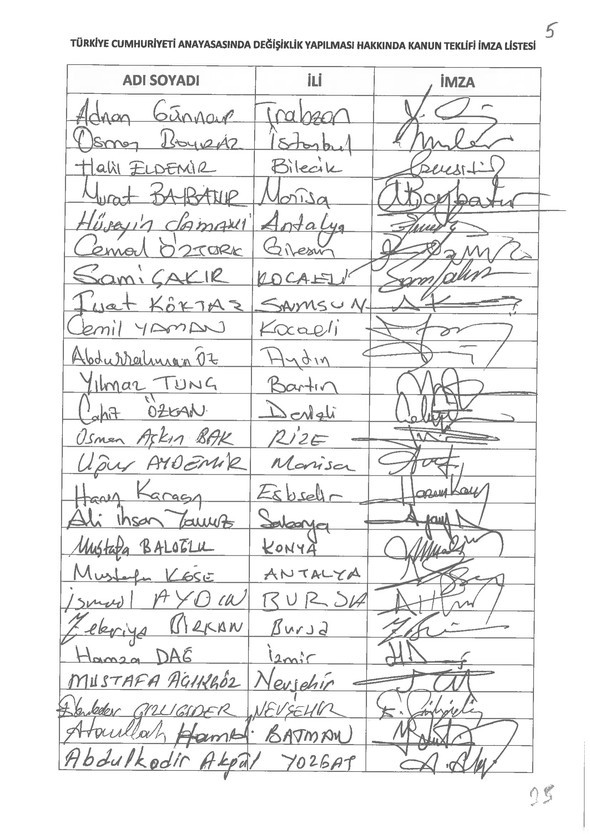 5
TÜRKİYE CUMHURİYETİ ANAYASASINDA DEĞİŞİKLİK YAPILMASI HAKKINDA KANUN TEKLİFİ İMZA LİSTESİ
ADI SOYADI İLİ İMZA
Adnan Günnar Trabzon
Osman BOYRAZ İstanbul
Halil ELDEMİR Bilecik
Murat BAYBATUR Manisa M Baybatur
Hüseyin Samani Antalya
Cemal ÖZTÜRK Giresun
Sami ÇAKIR KOCAELİ
Fuat KÖKTAŞ SAMSUN
Cemil YAMAN Kocaeli
Abdurrahman Öz Aydın
Yılmaz TUNÇ Bartın
Cahit ÖZKAN Denizli
Osman Aşkın BAK RİZE
Uğur AYDEMİR Manisa
Harun Karacan Eskişehir
Ali İhsan Yavuz Sakarya
Mustafa BALOĞLU KONYA
Mustafa KÖSE ANTALYA
İsmail AYDIN BURSA
Zekeriya BİRKAN Bursa
Hamza DAĞ İzmir
MUSTAFA AÇIKGÖZ Nevşehir
NEVŞEHİR
Ataullah Hamidi BATMAN
Abdulkadir Akgül YOZGAT
25